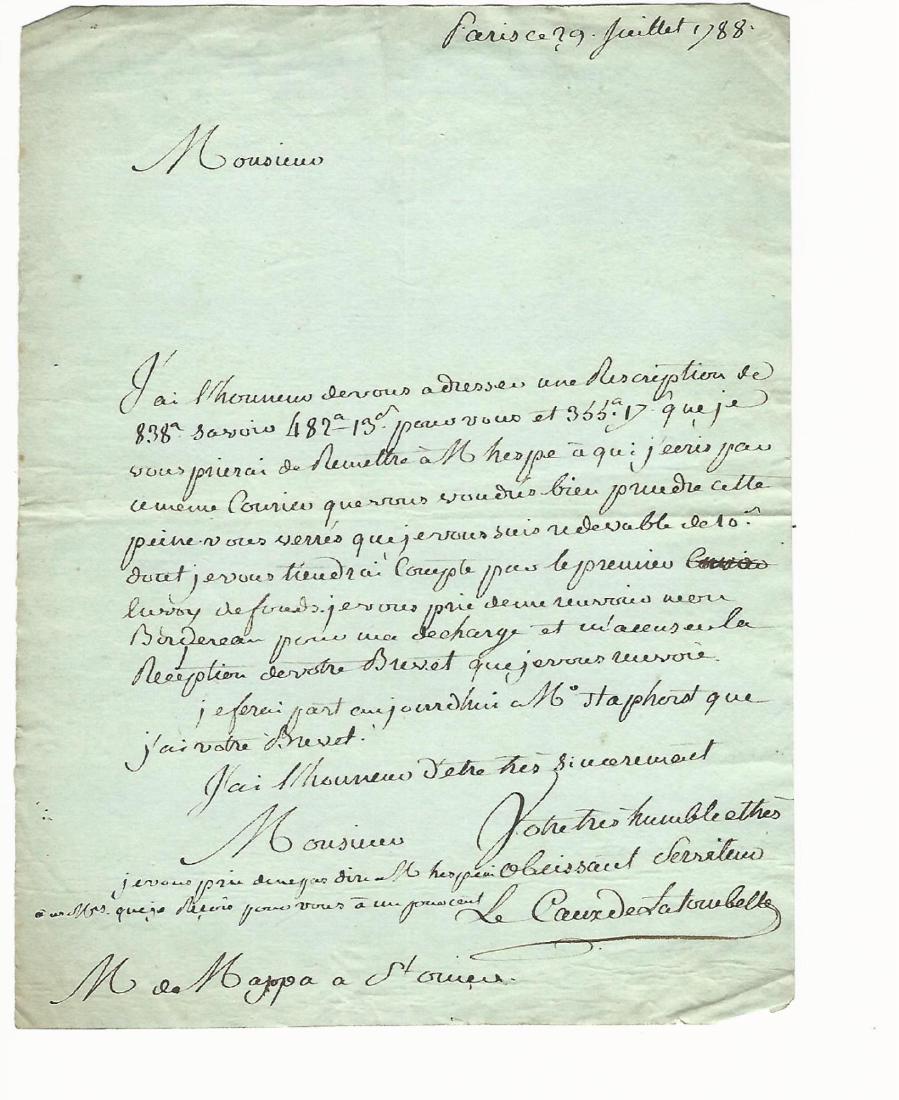 Paris ce 29. Juillet 1788.
Monsieur
J'ai l'honneur de vous adresser une Rescription de
838ᴴ savoir 482ᴴ-13ˢ pour vous et 355ᴴ.17 que je
vous prierai de Remettre à M hespe à qui j'ecris par
ce meme Courier que vous voudrés bien prendre cette
peine. vous verrés que je vous suis redevable de 10ˢ
dont je vous tiendrai Compte par le premier
Envoy de fonds. je vous prie de me renvoier mon
Bordereau pour ma decharge et m'accuser la
Reception de votre Brevet que je vous renvoie.
je ferai part aujourdhui a Mʳ staphorst que
j'ai votre Brevet.
J'ai l'honneur d'etre très sincerement
Monsieur
Votre très humble et très
obeissant Serviteur
je vous prie de ne pas dire a M hespe ni
a ces Mrs. que je Reçois pour vous à un pour cent
Le Caux de Latombelle
M de Mappa a Sᵗ omer.